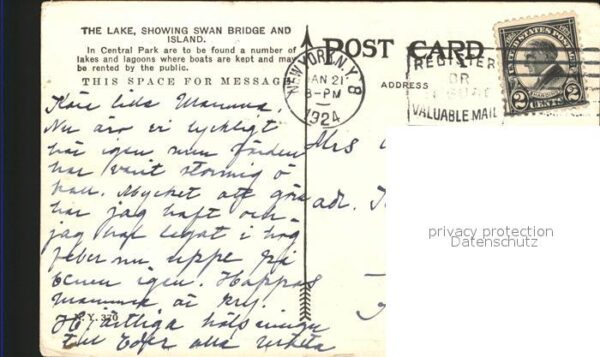 THE LAKE, SHOWING SWAN BRIDGE AND
ISLAND.
In Central Park are to be found a number of
lakes and lagoons where boats are kept and may
be rented by the public.
THIS SPACE FOR MESSAGE
POST CARD
ADDRESS
NEW YORK, N.Y. 8
JAN 21
8-PM
1924
REGISTER
OR
VALUABLE MAIL
UNITED STATES POSTAGE
2 CENTS 2
Kära lilla Mamma.
Nu äro vi lyckligt
här igen men färden
har varit stormig o
kall. Mycket att göra
har jag haft och
jag har legat i hög
feber nu uppe på
benen igen. Hoppas
Mamma är kry.
N.Y. 370
Hjärtliga hälsningar
till Eder alla
Mrs
adr.
privacy protection
Datenschutz